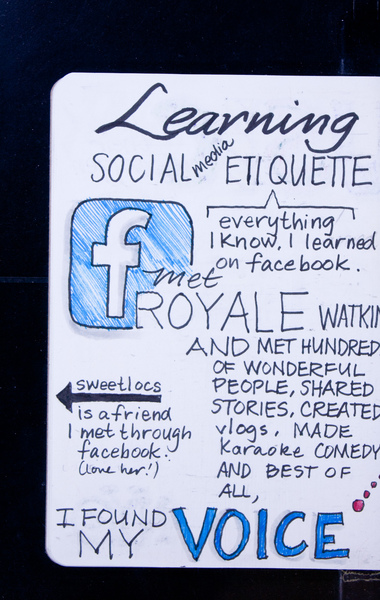 Learning
SOCIAL media ETIQUETTE
everything
I know, I learned
on facebook.
f
met
ROYALE WATKIN
AND MET HUNDRED
OF WONDERFUL
PEOPLE, SHARED
STORIES, CREATED
vlogs, MADE
Karaoke COMEDY
AND BEST OF
ALL,
sweetlocs
is a friend
I met through
facebook.
(love her!)
I FOUND
MY VOICE